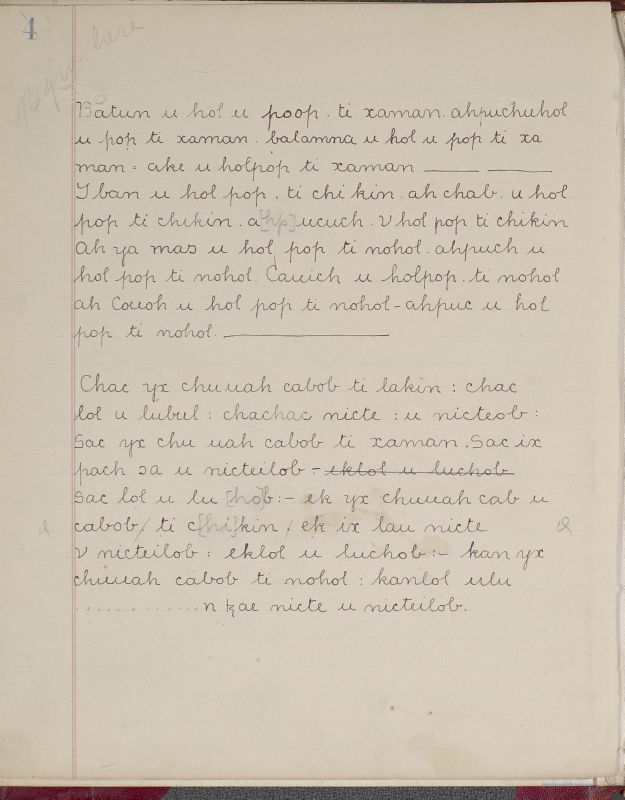 4
Begin here
Batun u hol u poop. ti xaman. ahpuchuhol
u pop ti xaman. balamna u hol u pop ti xa
man = ake u holpop ti xaman ___ ___
Iban u hol pop. ti chi kin. ah chab. u hol
pop ti chikin. a[hp]ucuch. V hol pop ti chikin
Ah ya mas u hol pop ti nohol. ahpuch u
hol pop ti nohol. Cauich u holpop. ti nohol
ah Couoh u hol pop ti nohol - ahpuc u hol
pop ti nohol. ___
Chac yx chuuah cabob ti lakin : chac
lol u lubul : chachac nicte : u nicteob :
Sac yx chu uah cabob ti xaman. Sac ix
pach sa u nicteilob - eklol u luchob
Sac lol u lu [ho]b :- ek yx chuuah cab u
cabob / ti c[hi]kin / ek ix lau nicte
V nicteilob : eklol u luchob :- kan yx
chuuah cabob ti nohol : kanlol ulu
. . . . . . . . . . . . n ꜩae nicte u nicteilob.